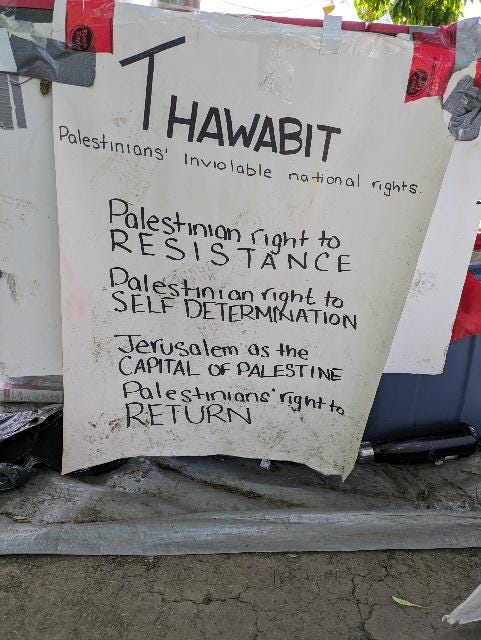 THAWABIT
Palestinians' inviolable national rights.
Palestinian right to
RESISTANCE
Palestinian right to
SELF DETERMINATION
Jerusalem as the
CAPITAL OF PALESTINE
Palestinians' right to
RETURN